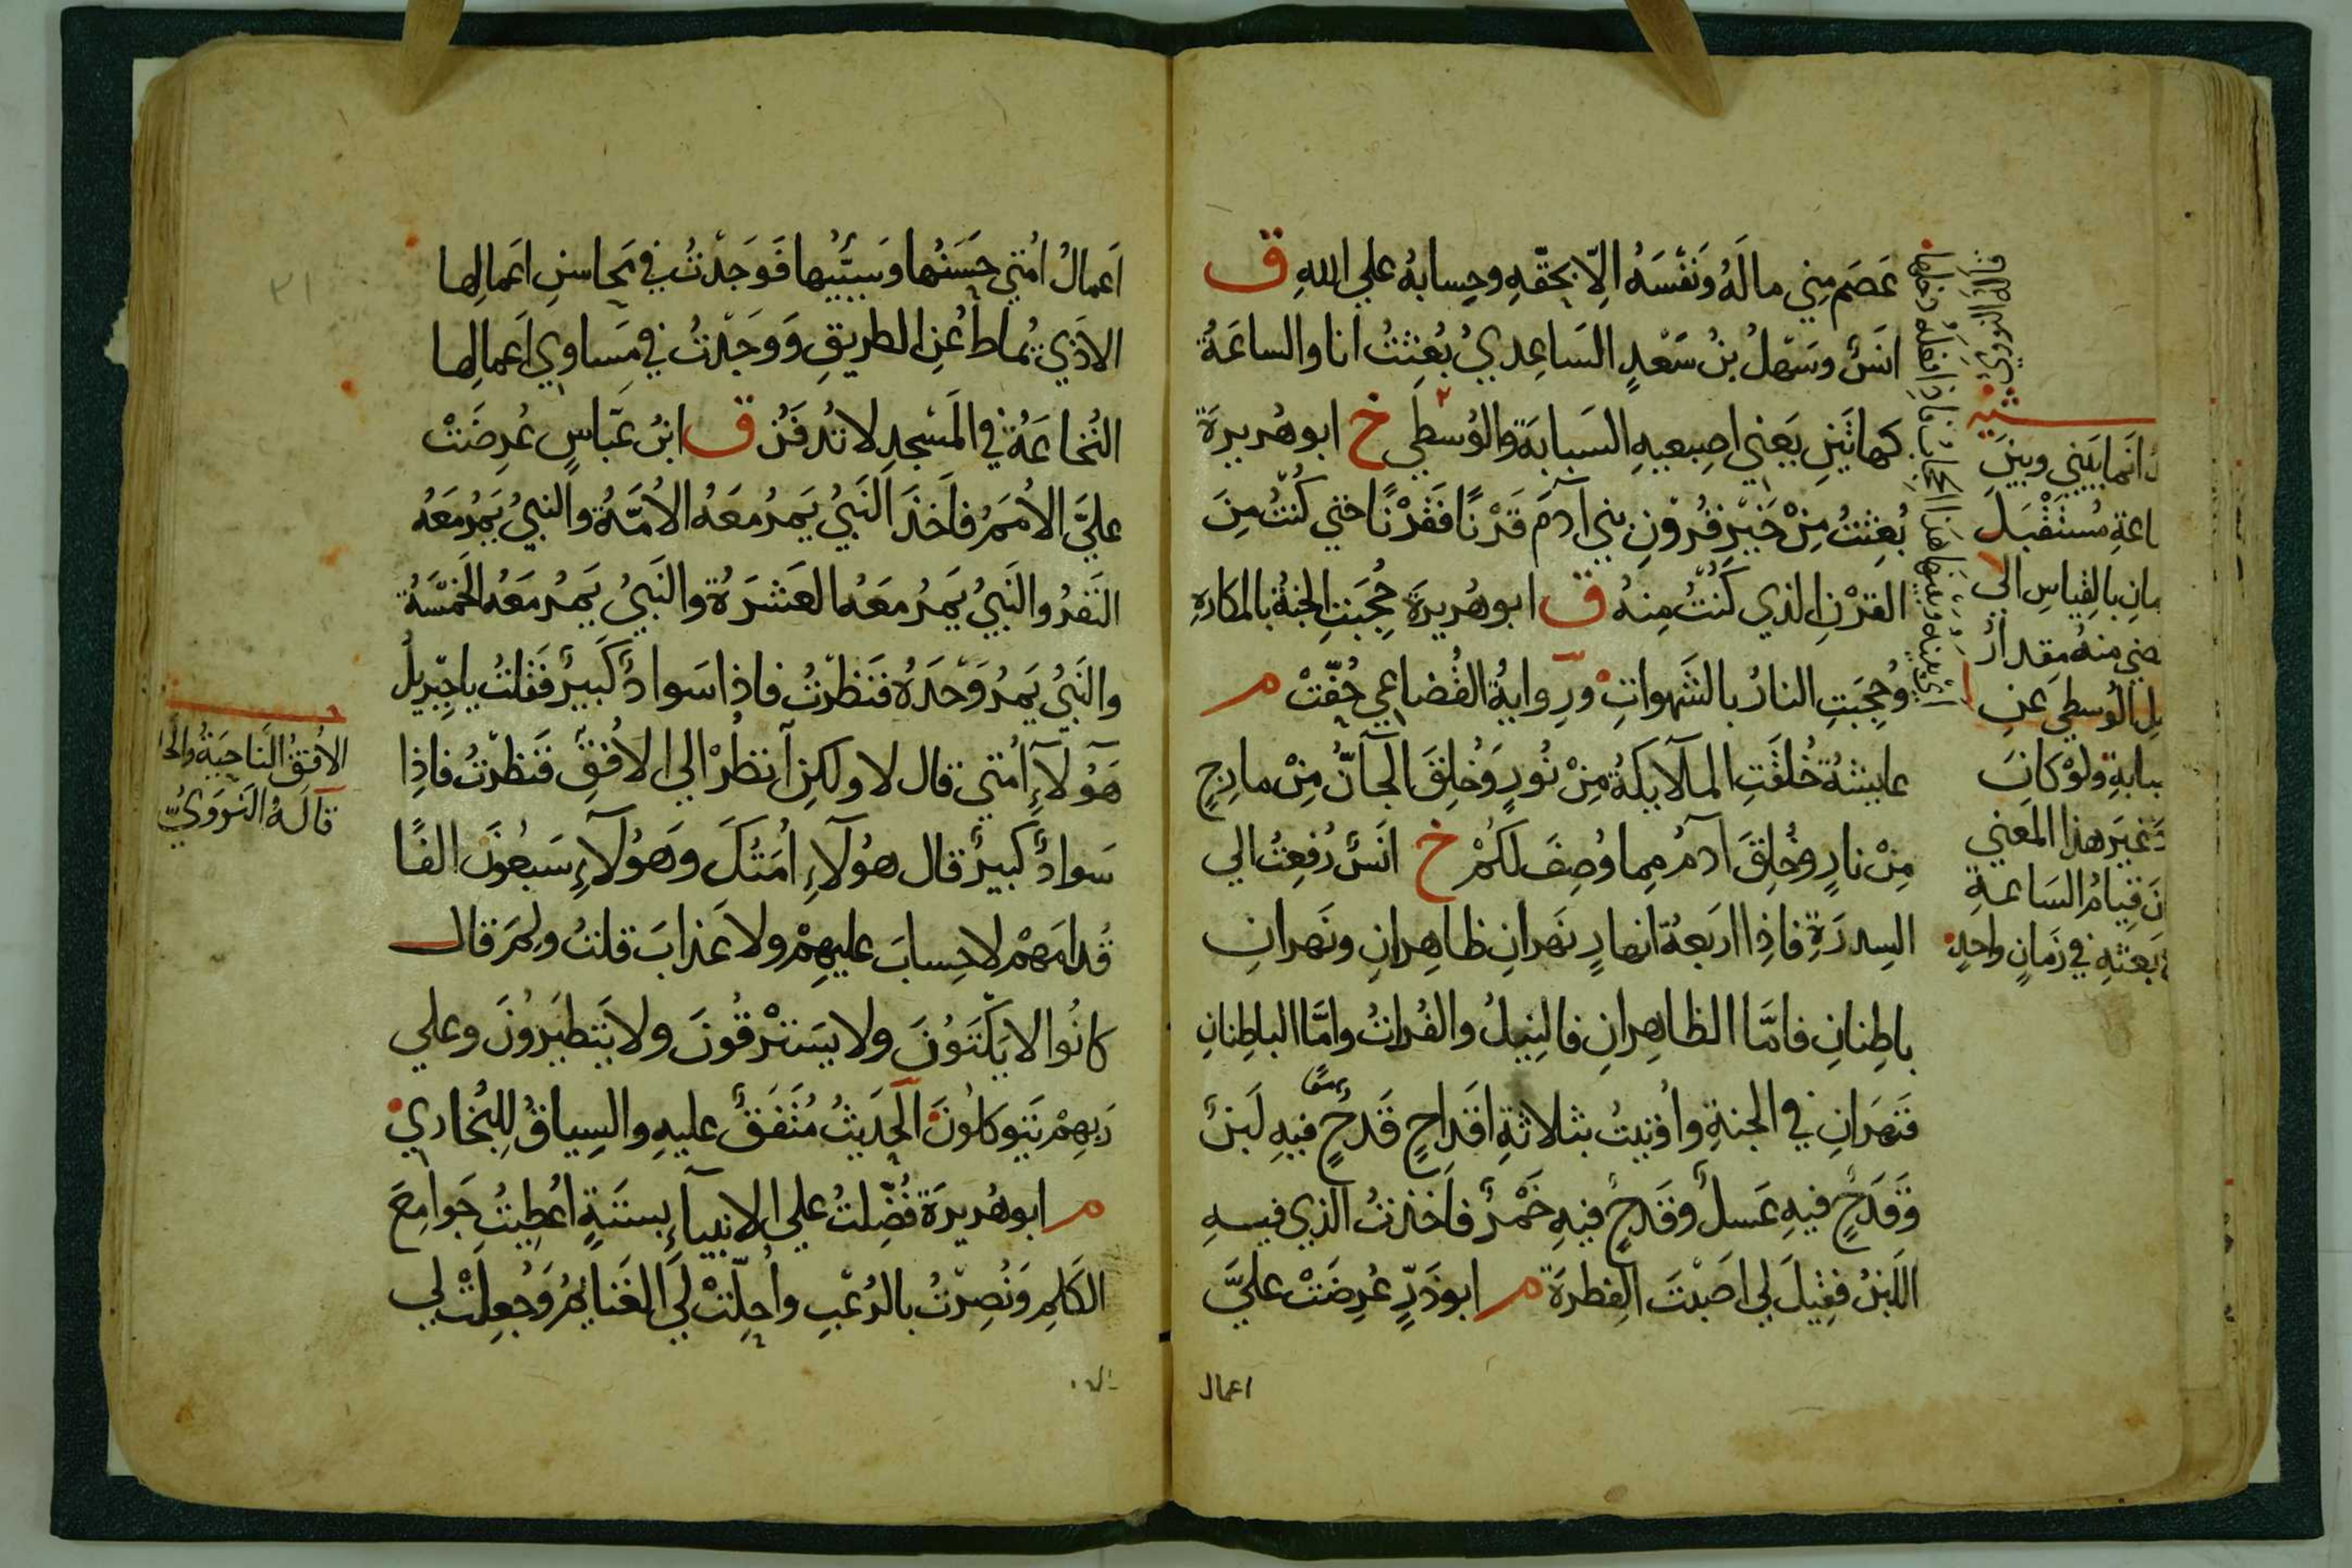 عَصَمَ مِنِي مالَهُ وَنَفْسَهُ اِلّا بِحَقّهِ وحِسابهُ علي اللهِ ق
انَسٌ وسَهْلُ بنُ سَعْدٍ السَاعِدِيُ بُعِثتُ انا والساعَةُ
كهاتَينِ يَعني اصبعيهِ السَبابَة والوُسْطي خ ابو هُريرةَ
بُعِثتُ مِنْ خَيْرِ قُرُوْنِ بني آدَمَ قَرْنًا فَقَرْنًا حتي كُنْتُ مِنَ
القَرْنِ الذي كُنْتُ مِنهُ ق ابو هُريرةَ حُجِبَتِ الجنةُ بالمكارهِ
وحُجِبَتِ النارُ بالشَهواتِ ورِوايةُ القُضاعي حُفّتْ م
عايشةُ خُلقَتِ الملآئكةُ مِنْ نُورٍ وَخُلِقَ الجآنُّ مِنْ مارِجٍ
مِنْ نارٍ وخُلِقَ آدمُ مِما وُصِفَ لكُمْ خ انَسٌ رُفِعتُ الي
السِدرَةِ فاذِا اربَعةُ انهارٍ نَهرانِ ظاهِرانِ ونَهرانِ
باطِنانِ فامَّا الظاهِرانِ فالنِيلُ والفُراتُ وامَّا الباطِنانِ
فَنَهرَانِ في الجنةِ واُوْتيتُ بثلاثةِ اقداحٍ قَدحٌ فيهِ لَبَنٌ
وَقَدَحٌ فيهِ عَسلٌ وقَدحٌ فيهِ خَمْرٌ فاَخَذتُ الذي فيهِ
اللّبَنُ فقِيلَ لي اصَبْتَ الفِطرَةَ م ابو ذَرٍّ عُرِضَتْ عليَّ
اعمال
قاله النووي
انما بيني وبين
اعةِ مُستَقْبَلَ
مانِ بالقِياسِ الي
ضي منهُ مِقدارُ
لِ الوُسطي عَنِ
بابةِ ولَوْ كانَ
غيرَ هذا المعني
نَ قِيامُ السَاعةِ
بَعثهِ في زمَانٍ واحدٍ
اَعمالُ اُمّتي حَسَنُها وَسيّئِها فَوَجَدْتُ في مَحاسنِ اعَمالِها
الاذَي يُماطُ عَنِ الطريقِ وَوَجَدْتُ في مَساوِي اَعمالِها
النُخاعَةُ في المَسْجِدِ لا تُدفَنُ ق ابنُ عبّاسٍ عُرِضَتْ
عليَّ الاُممُ فاَخذَ النَبيُ يَمرُ مَعَهُ الاُمّةُ والنبيُ يَمُرُ مَعَهُ
النَفَرُ والنَبيُ يَمرُ معَهُ العَشرَةُ والنَبيُ يَمرُ مَعَهُ الخَمْسَةُ
والنَبيُ يَمرُ وَحْدَهُ فَنَظَرْتُ فاذا سَوادٌ كَبيرٌ فَقُلتُ يا جِبْريلُ
هَؤُلآءِ اُمّتي قال لا ولكنِ انظُرْ الي الاُفقِ فَنظَرْتُ فاِذا
سَوادٌ كبيرٌ قال هؤُلآءِ اُمّتُكَ وهَؤُلآءِ سَبعُونَ الفًا
قُدامَهمْ لا حِسابَ عليهِمْ ولا عَذابَ قلتُ ولِمَ قال
كانُوا لا يَكْتوُنَ ولا يَستَرْقُونَ ولا يَتطيّرُونَ وعلي
رَبهِمْ يَتوكلُونَ الحَديثُ مُتّفَقٌ عليهِ والسِياقُ لِلبُخاري
م ابو هُريرَة فُضّلتُ علي الانبيآءِ بستةٍ اُعْطِيتُ جَوامِعَ
الكَلِمِ وَنُصِرْتُ بالرُعْبِ واُحِلّتْ ليَ الغَنايمُ وَجُعِلَتْ لي
الاُفقُ النَاحِيَةُ
قآلهُ النَوَوِيُّ
٣١